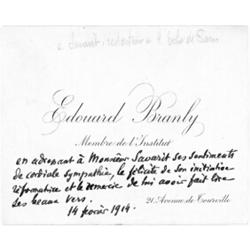 Edouard Branly
Membre de l'Institut
en adressant à Monsieur Savarit ses sentiments
de cordiale sympathie, le félicite de son initiative
réformatrice et le remercie de lui avoir fait lire
ses beaux vers.
14 février 1914.
21 Avenue de Tourville